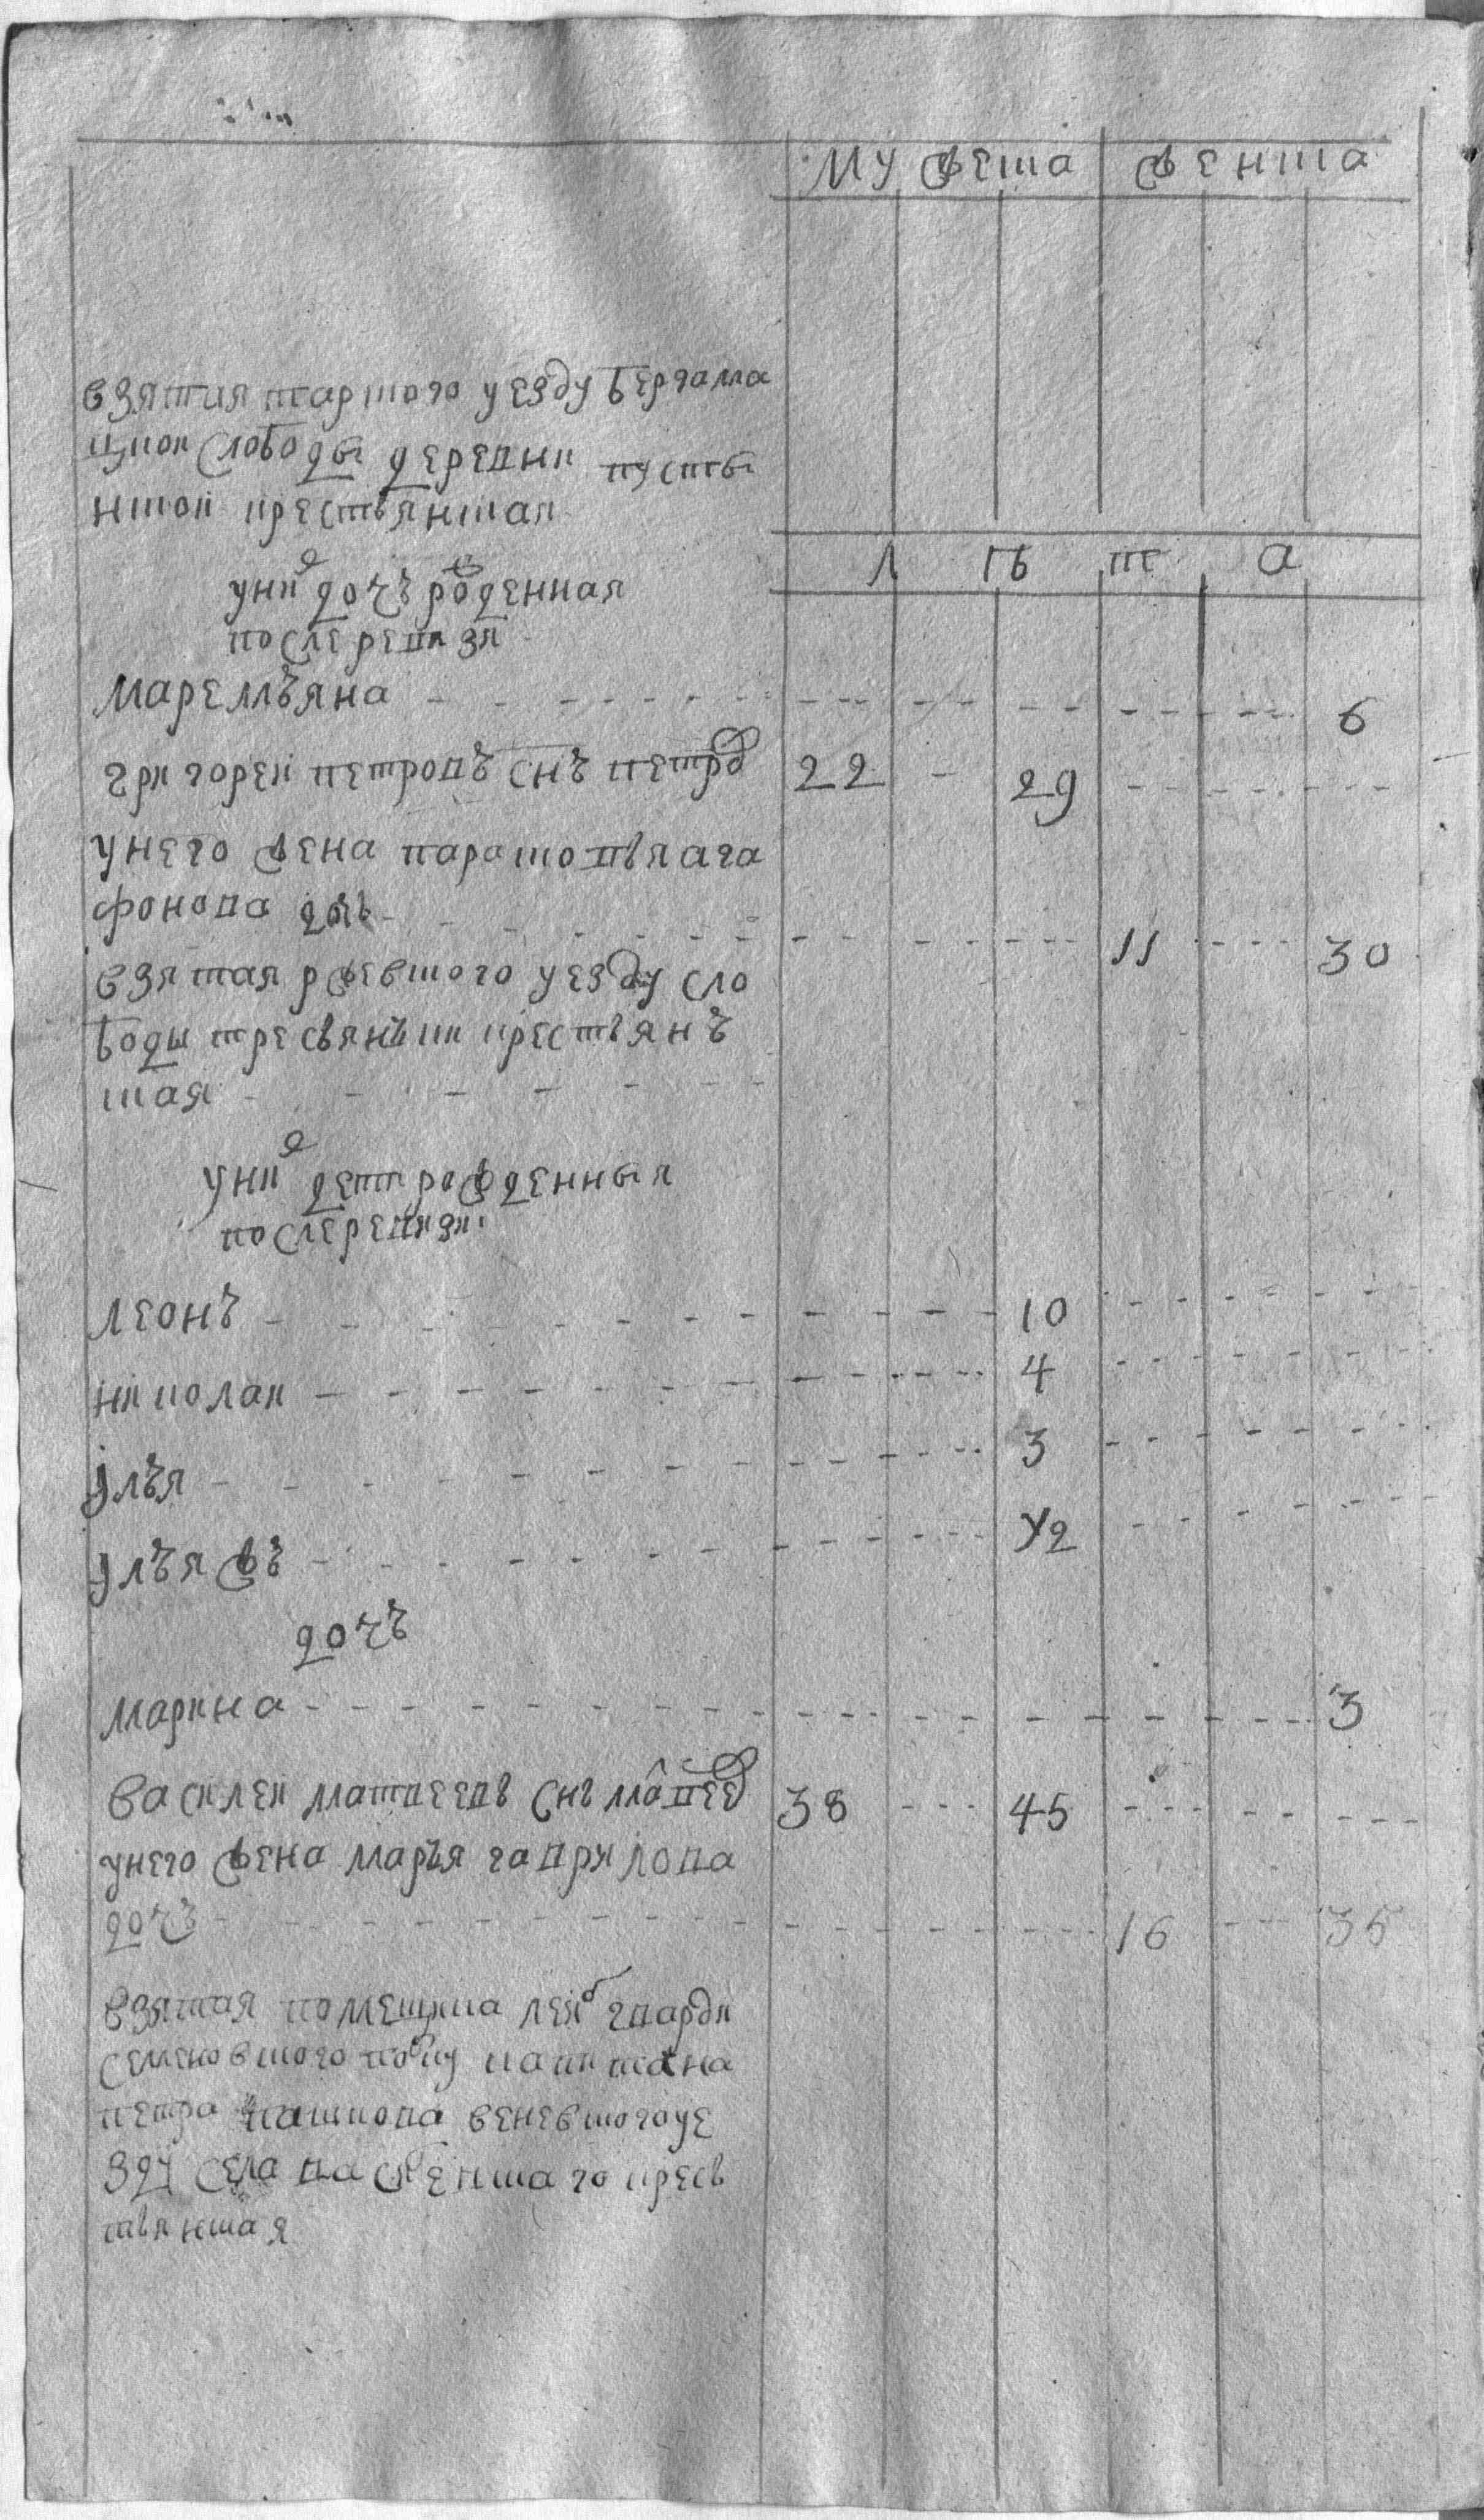 Мужеска женска
взятия тарского уезду бергама
цкой слободы деревни пусты
нской крестьянская
л ѣ т а
у них дочь рожденная
после ревизи
маремъяна - - - 6
григорей петровъ снъ петров 22 - 29 - - -
у него жена параковья ага
фонова дочь - - - 11 - - - 30
взятая ржевского уезду сло
боды тресвянцки крестьянъ
ская
у них дети рожденныя
после ревизи
леонъ - - - 10 - - -
николаи - - - 4 - - -
улъя - - - 3 - - -
улъя жъ - - - 1/2 - - -
дочъ
марина - - - 3
василеи матвеевъ снъ матвеев 38 - - - 45 - - -
у него жена маръя гаврилова
дочъ - - - 16 - - - 35
взятая помещика леиб гварди
семеновского полку капитана
петра веневского уе
зду села крес
тьянская